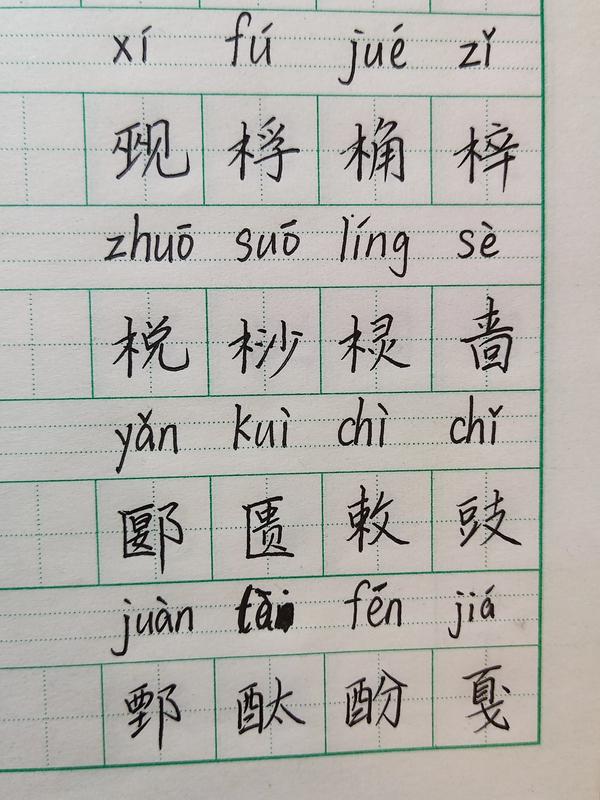 xí fú jué zǐ
觋 桴 桷 梓
zhuō suō líng sè
棁 桫 棂 啬
yǎn kuì chì chǐ
郾 匮 敕 豉
juàn fēn jiá
鄄 酞 酚 戛